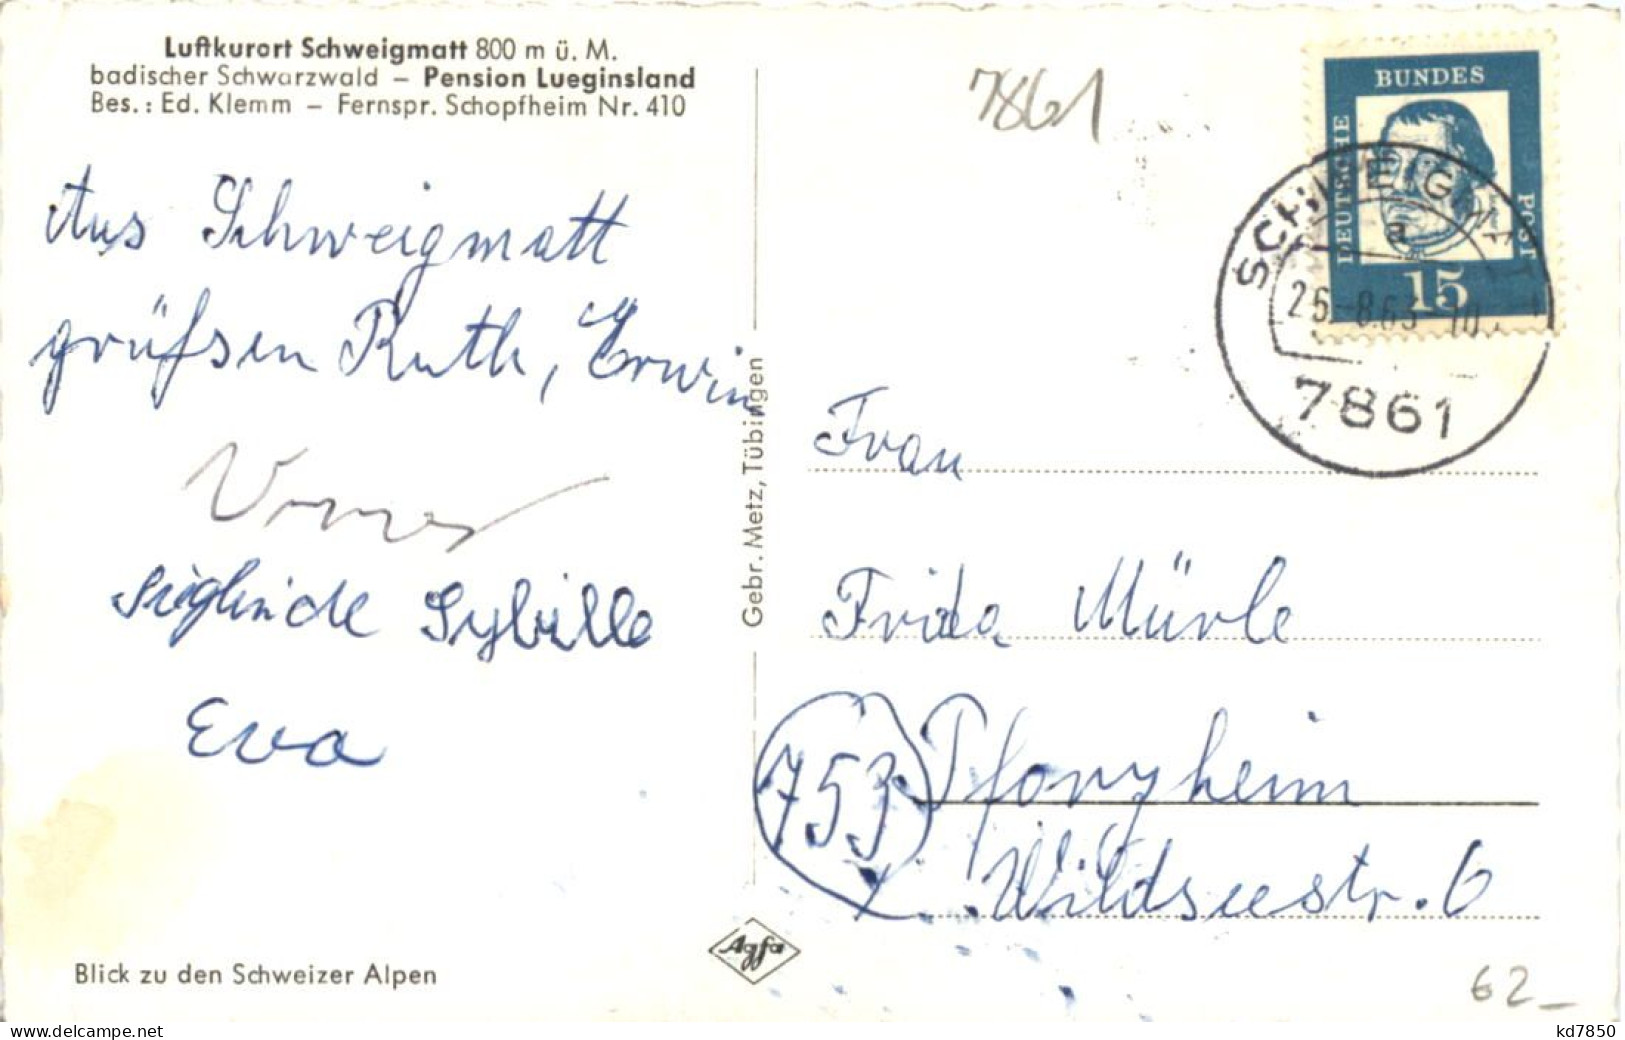 Luftkurort Schweigmatt 800 m ü. M.
badischer Schwarzwald – Pension Lueginsland
Bes.: Ed. Klemm – Fernspr. Schopfheim Nr. 410
Aus Schweigmatt
grüßen Ruth, Erwin
Sieglinde Sybille
Eva
Blick zu den Schweizer Alpen
Gebr. Metz, Tübingen
Agfa
7861
BUNDES
DEUTSCHE
POST
15
SCHWEIGMATT
a
7861
Frau
Frida Mürle
753 Pforzheim
Wildseestr. 6
62–
www.delcampe.net
kd7850